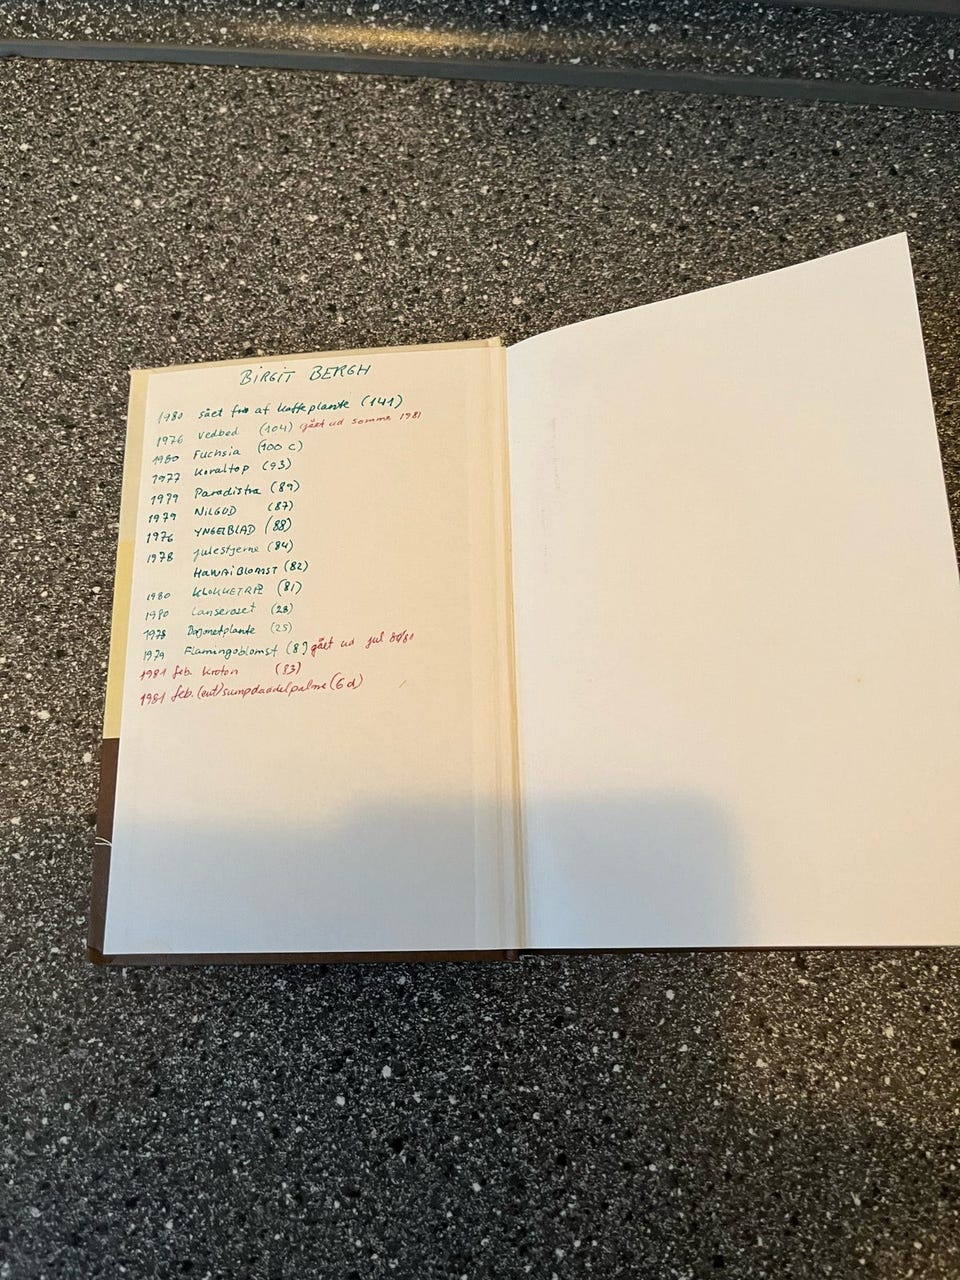 BIRGIT BERGH
1980 sået frø af kaffeplante (141)
1976 vedbed (104) gået ud somme 1981
1980 Fuchsia (100 c)
1977 Koraltop (93)
1979 Paradistræ (89)
1979 NILGUD (87)
1976 YNGELBLAD (88)
1978 julestjerne (84)
HAWAIIBLOMST (82)
1980 KLOKKETRÆ (81)
1980 Lanseroset (28)
1978 (25)
1979 Flamingoblomst (8) gået ud jul
1981 feb. kroton (83)
1981 feb. (evt) sumpdaddelpalme (6 d)